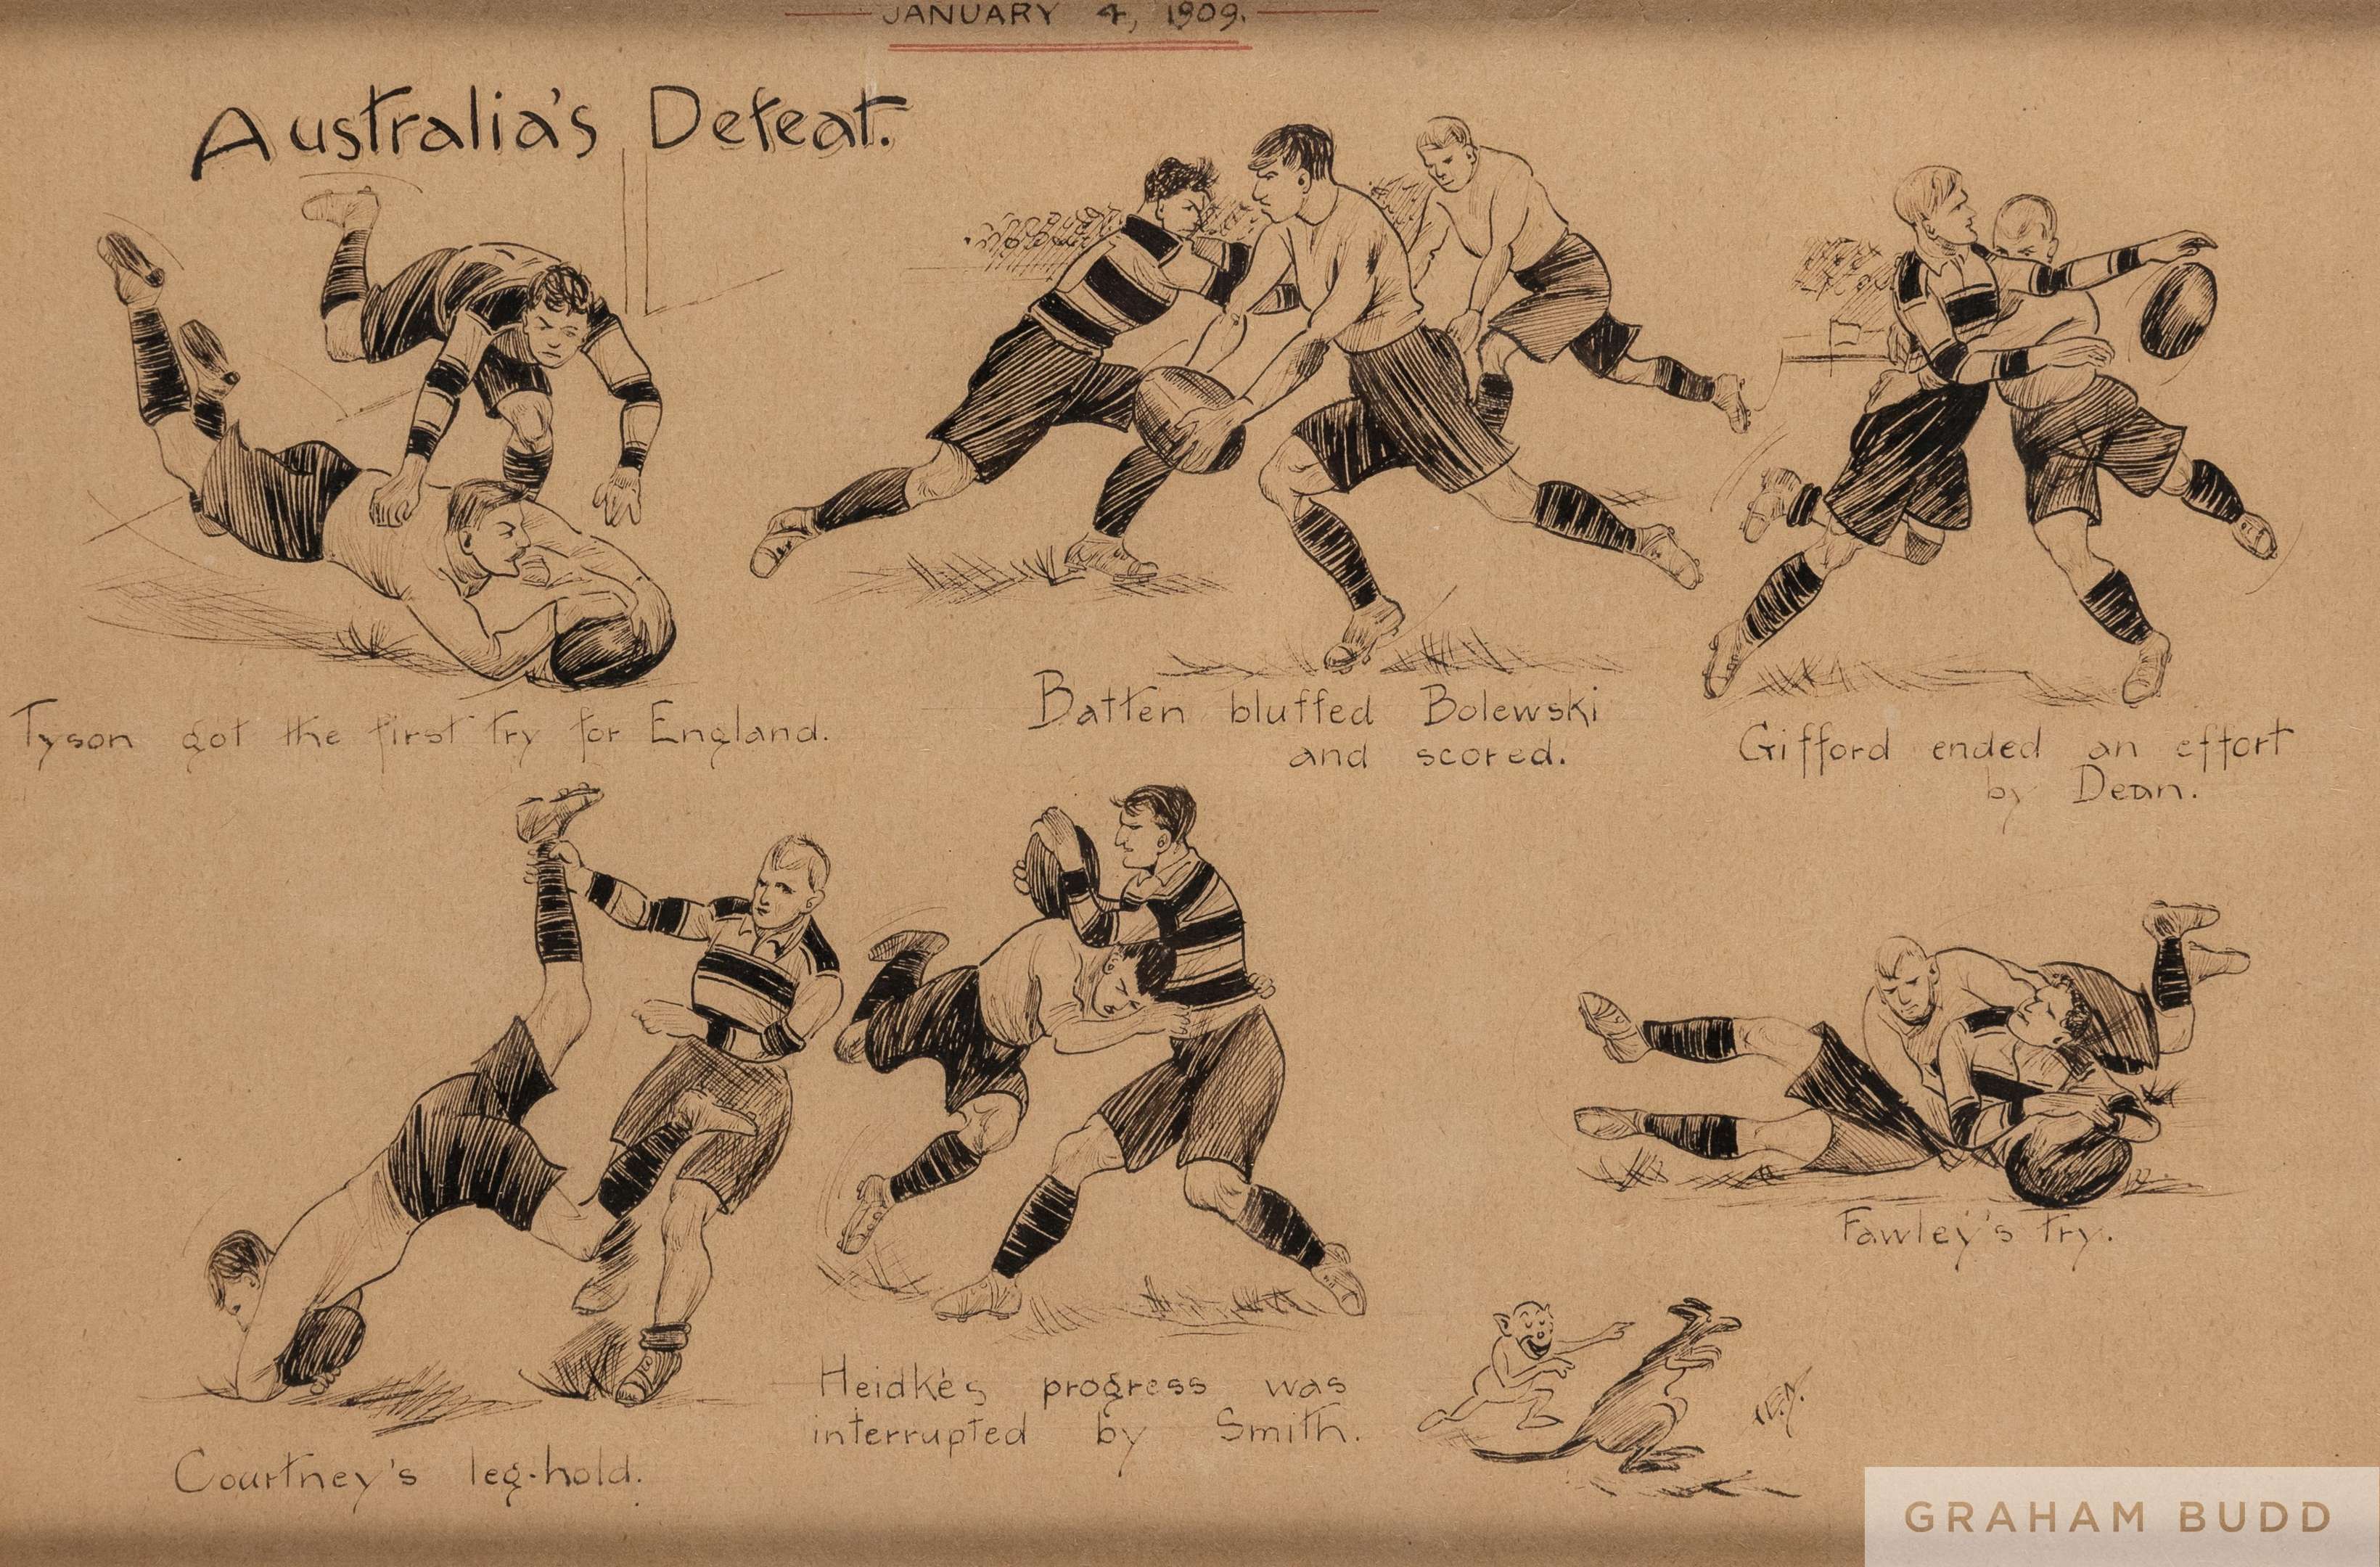 JANUARY 4, 1909.
Australia's Defeat.
Tyson got the first try for England.
Batten bluffed Bolewski
and scored.
Gifford ended an effort
by Dean.
Courtney's leg-hold.
Heidke's progress was
interrupted by Smith.
Fawley's try.
GRAHAM BUDD